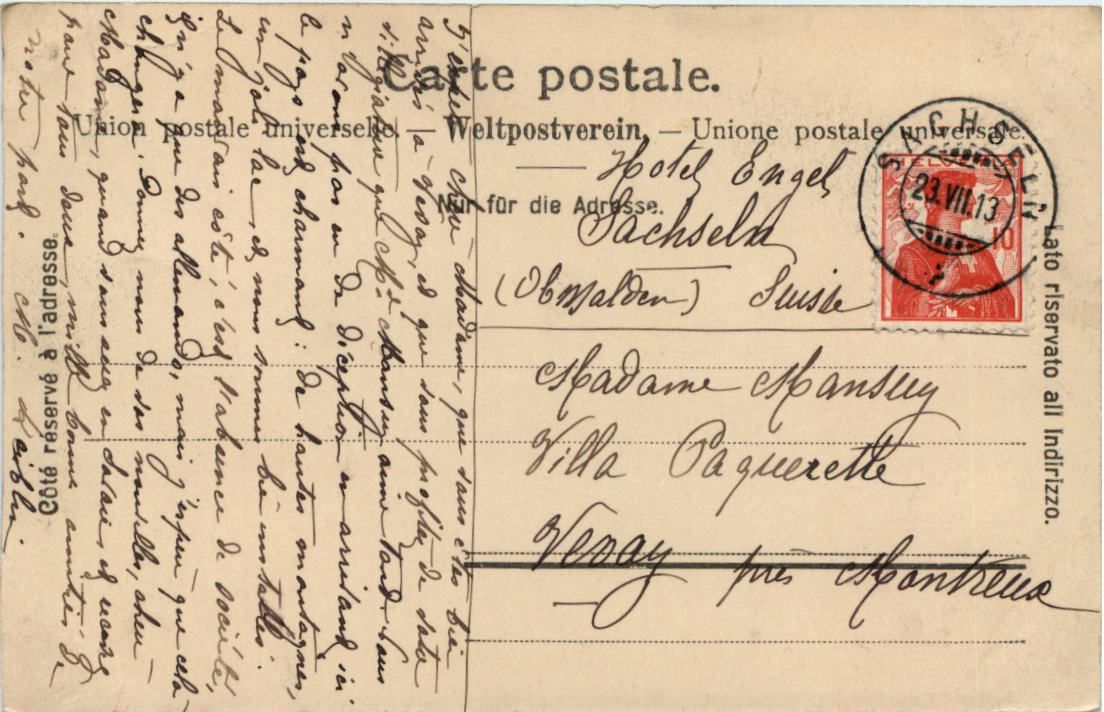 Carte postale.
Union postale universelle. — Weltpostverein. — Unione postale universale.
Nur für die Adresse.
Côté réservé à l'adresse.
Lato riservato all indirizzo.
SACHSELN
23.VII.13
10
Hotel Engel
Sachseln
(Obwalden) Suisse
Madame Mansuy
Villa Paquerette
Vevay près Montreux
J'espère chère Madame, que vous êtes bien
arrivés à Vevay, et que vous profitez de votre
villégiature que Mr. de Mansuy aime tant. Nous
n'avons pas eu de déception en arrivant ici
le pays est charmant: de hautes montagnes,
un joli lac, et nous sommes bien installés.
Le mauvais côté, c'est l'absence de société,
il n'y a que des allemands, mais j'espère que cela
changera. Donnez nous de vos nouvelles, chère
Madame, quand vous aurez en, et recevez
pour vous deux, mille bonnes amitiés de
notre part. M.